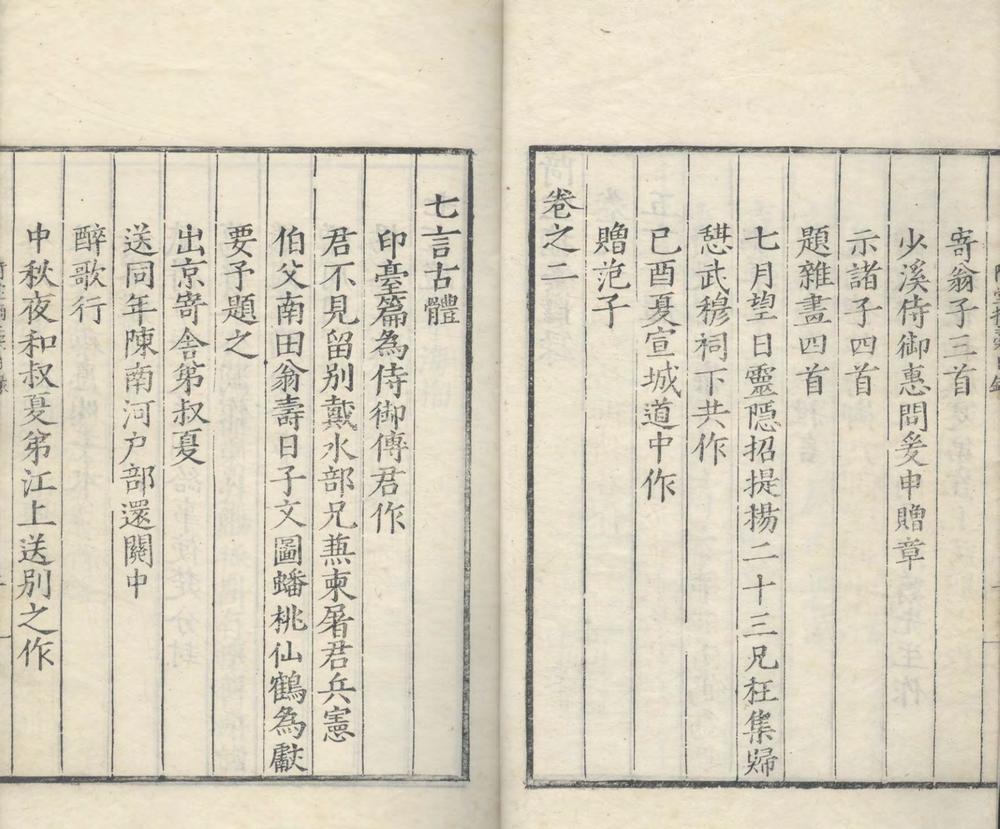 寄翁子三首
少溪侍御惠問爰申贈章
示諸子四首
題雜畫四首
七月望日靈隱招提揚二十三兄枉集歸
憇武穆祠下共作
己酉夏宣城道中作
贈范子
卷之二
七言古體
印臺篇為侍御傅君作
君不見留別戴水部兄蕪柬屠君兵憲
伯父南田翁壽日子文圖蟠桃仙鶴為獻
要予題之
出京寄舍第叔夏
送同年陳南河戶部還關中
醉歌行
中秋夜和叔夏第江上送別之作